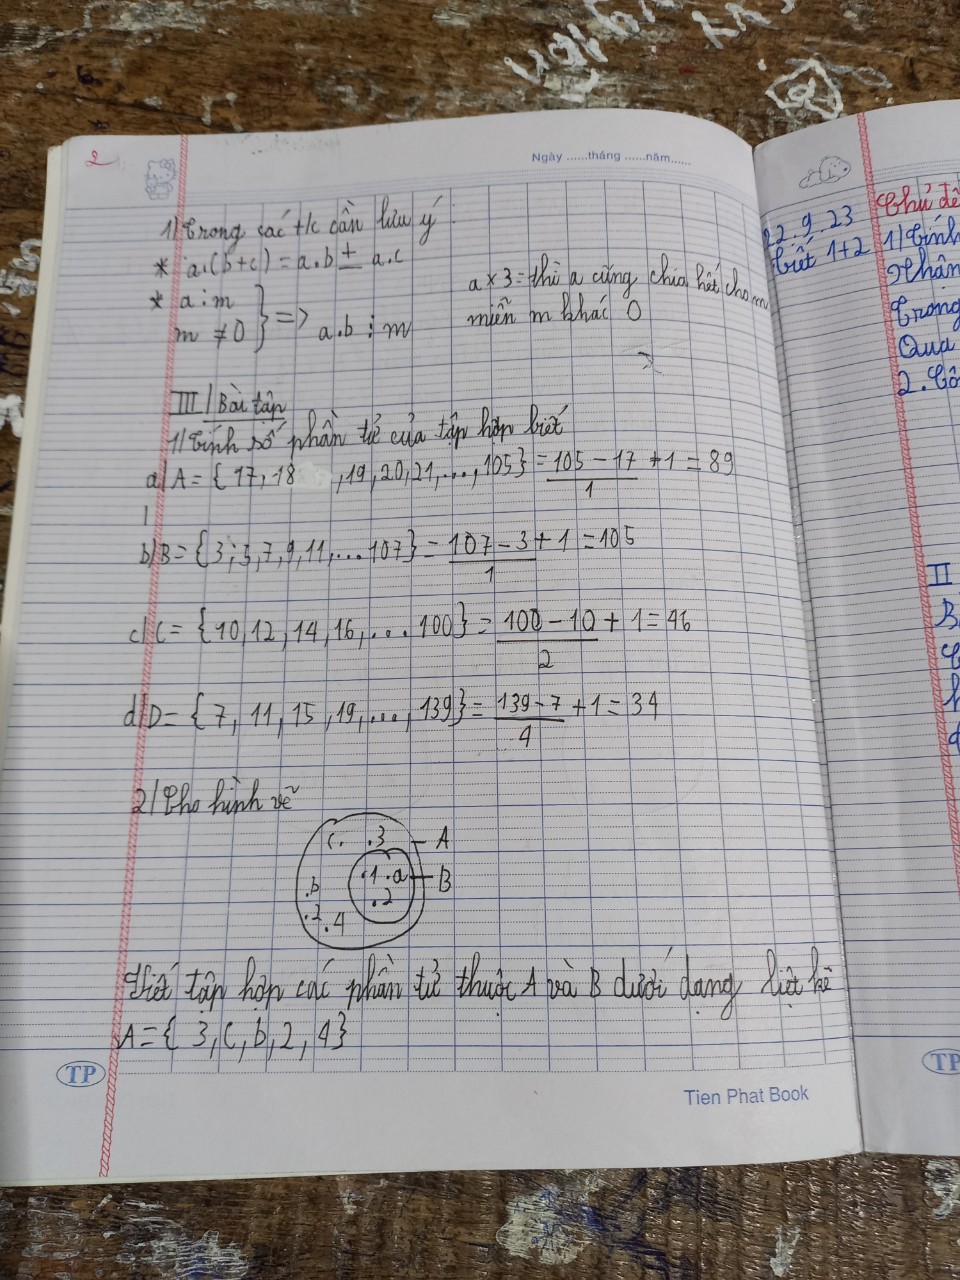 2
Ngày ......tháng ......năm......
1) Trong các t/c cần lưu ý :
* a.(b+c) = a.b ± a.c
* a ⋮ m
m ≠ 0 } => a.b ⋮ m
a x 3 = thì a cũng chia hết cho m
miễn m khác 0
III / Bài tập
1/ Tính số phần tử của tập hợp biết
a/ A = { 17, 18 , 19, 20, 21, ..., 105} = 105 - 17 / 1 + 1 = 89
b/ B = { 3; 5, 7, 9, 11, ... 107} = 107 - 3 / 1 + 1 = 105
c/ C = { 10, 12, 14, 16, ... 100} = 100 - 10 / 2 + 1 = 46
d/ D = { 7, 11, 15, 19, ..., 139} = 139 - 7 / 4 + 1 = 34
2/ Cho hình vẽ
c. .3 A
.1 .a B
.b .2
.2 .4
Viết tập hợp các phần tử thuộc A và B dưới dạng liệt kê
A = { 3, c, b, 2, 4}
TP
Tien Phat Book
22.9.23
Tiết 1+2
Chủ đề
1) Tính
Nhân
Trong
Qua
2.
II
TP